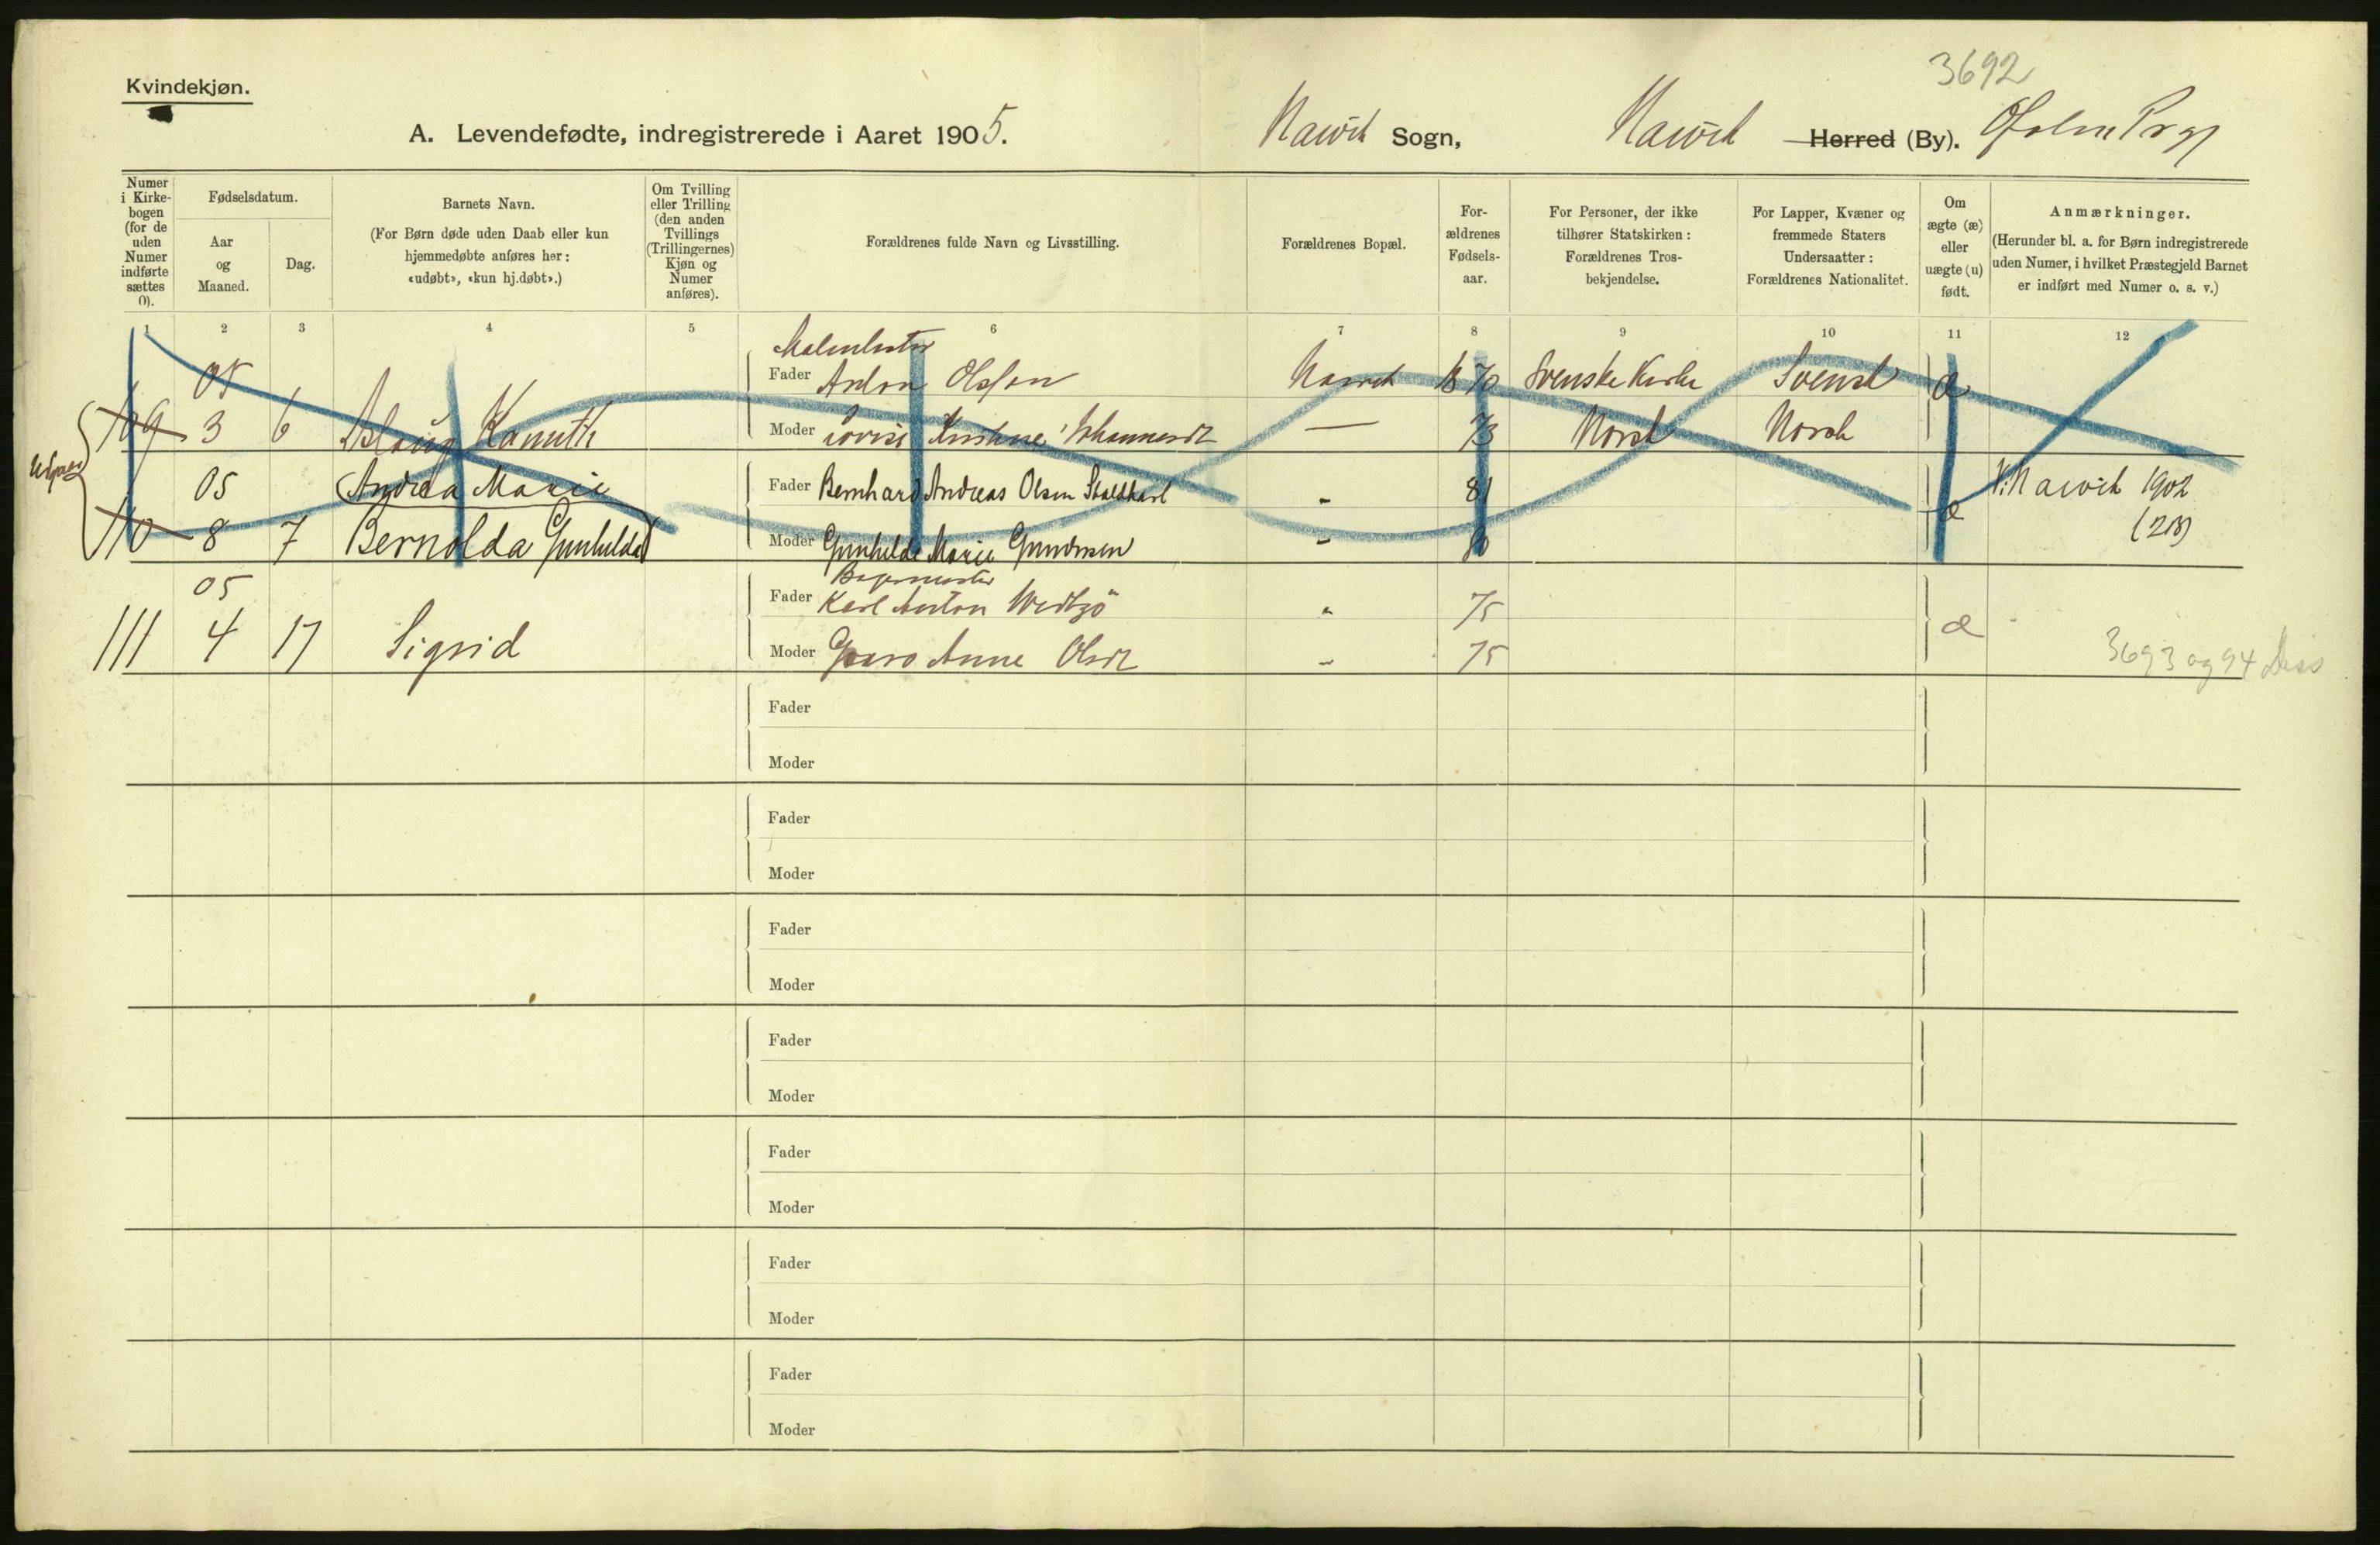 3692
Kvindekjøn.
A. Levendefødte, indregistrerede i Aaret 1905. Narvik Sogn, Narvik Herred (By). Ofoten Prgj
Numer i Kirkebogen (for de uden Numer indførte sættes 0).
Fødselsdatum.
Aar og Maaned.
Dag.
Barnets Navn.
(For Børn døde uden Daab eller kun hjemmedøbte anføres her: «udøbt», «kun hj.døbt».)
Om Tvilling eller Trilling (den anden Tvillings (Trillingernes) Kjøn og Numer anføres).
Forældrenes fulde Navn og Livsstilling.
Forældrenes Bopæl.
Forældrenes Fødselsaar.
For Personer, der ikke tilhører Statskirken: Forældrenes Trosbekjendelse.
For Lapper, Kvæner og fremmede Staters Undersaatter: Forældrenes Nationalitet.
Om ægte (æ) eller uægte (u) født.
Anmærkninger.
(Herunder bl. a. for Børn indregistrerede uden Numer, i hvilket Præstegjeld Barnet er indført med Numer o. s. v.)
1 2 3 4 5 6 7 8 9 10 11 12
05
Fader Anton Olsson Narvik 1870 Svenske Kirke Svensk æ
109 3 6 Aslaug Kanuth
Moder Lovise Kristine Johannesdt — 73 Norsk Norsk
05 Andrea Marie
Fader Bernhard Andreas Olsen Staldkarl " 81 V: Narvik 1902
110 8 7 Bernolda Gunhilda æ (218)
Moder Gunhilde Marie Gundersen " 80
05 Bagermester
Fader Karl Anton Wedtzö " 75
111 4 17 Sigrid æ
Moder Guro Anne Olsdt " 75
3693 og 94
Fader
Moder
Fader
Moder
Fader
Moder
Fader
Moder
Fader
Moder
Fader
Moder
Fader
Moder